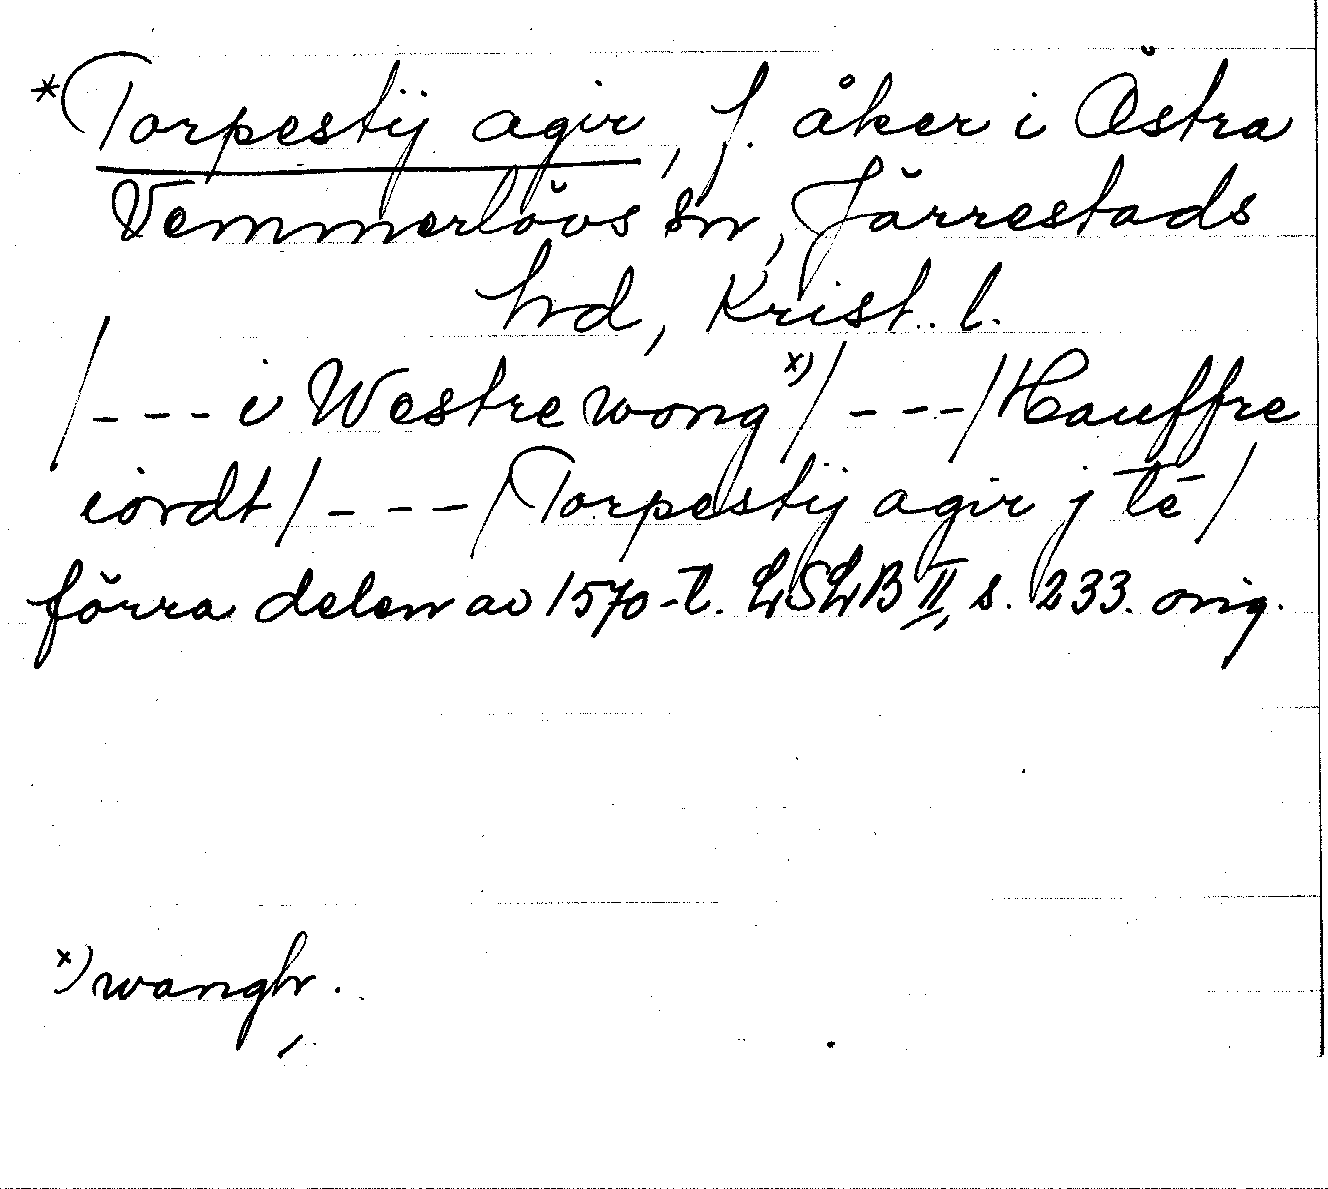 *Torpestij agir, f. åker i Östra
Vemmerlövs sn, Järrestads
hrd, Krist. l.
/--- i Westre wong x)/ ---/Hauffre
iordt/ ---/Torpestij agir j té/
förra delen av 1570-t. LSLB II, s. 233. orig.
x) wangh.